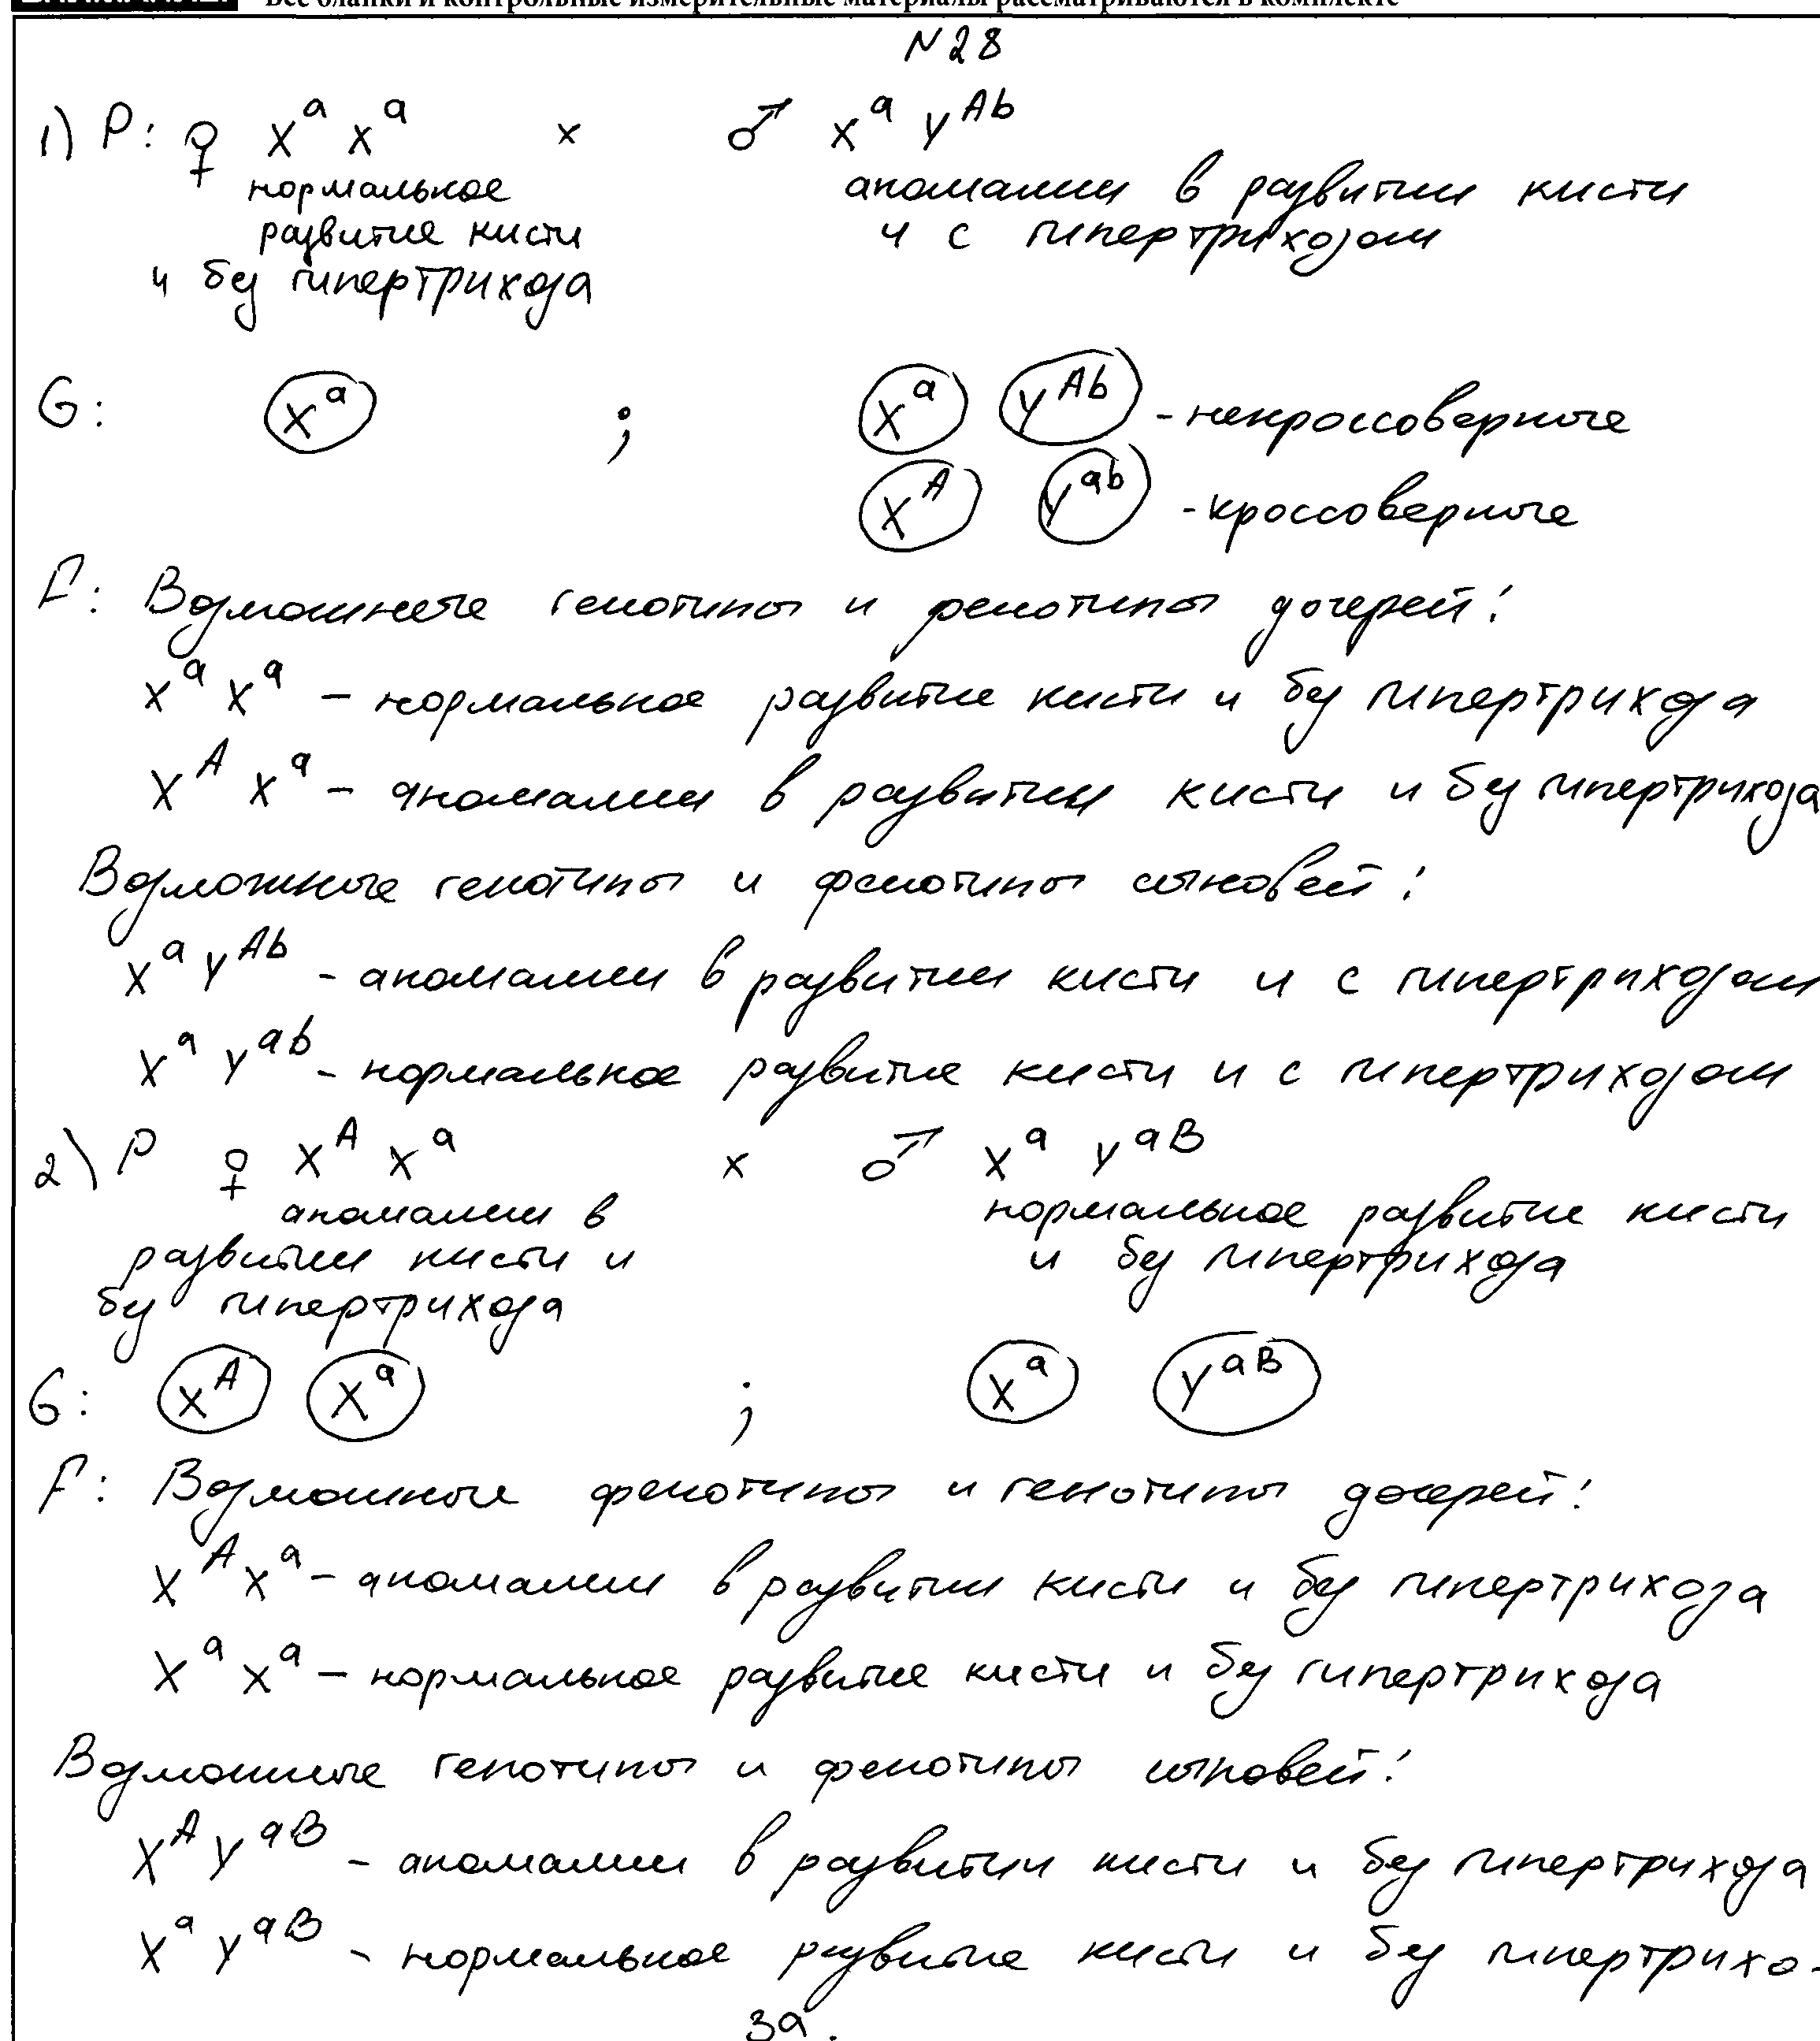 Все бланки и контрольные измерительные материалы рассматриваются в комплекте
N28
1) P: ♀ X^a X^a × ♂ X^a Y^Ab
нормальное аномалии в развитии кисти
развитие кисти и с гипертрихозом
и без гипертрихоза
G: X^a ; X^a Y^Ab - некроссоверные
X^A Y^ab - кроссоверные
F: Возможные генотипы и фенотипы дочерей:
X^a X^a – нормальное развитие кисти и без гипертрихоза
X^A X^a – аномалии в развитии кисти и без гипертрихоза
Возможные генотипы и фенотипы сыновей:
X^a Y^Ab - аномалии в развитии кисти и с гипертрихозом
X^a Y^ab - нормальное развитие кисти и с гипертрихозом
2) P ♀ X^A X^a × ♂ X^a Y^aB
аномалии в нормальное развитие кисти
развитии кисти и и без гипертрихоза
без гипертрихоза
G: X^A X^a ; X^a Y^aB
F: Возможные фенотипы и генотипы дочерей:
X^A X^a – аномалии в развитии кисти и без гипертрихоза
X^a X^a – нормальное развитие кисти и без гипертрихоза
Возможные генотипы и фенотипы сыновей:
X^A Y^aB - аномалии в развитии кисти и без гипертрихоза
X^a Y^aB - нормальное развитие кисти и без гипертрихо-
за.